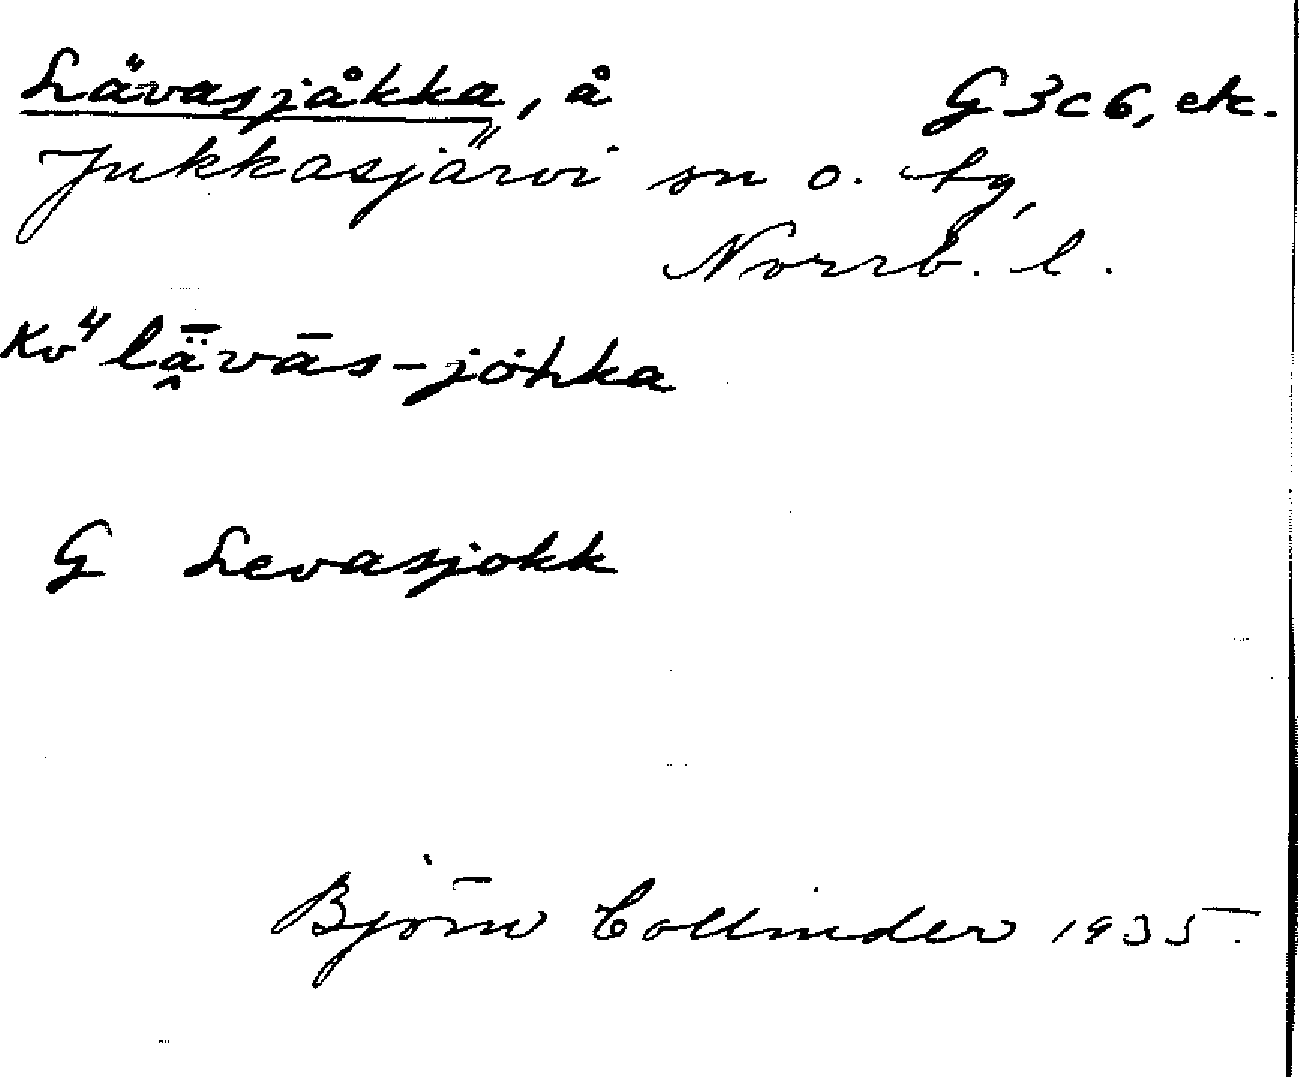 Lävasjåkka, å G 3c6, etc.
Jukkasjärvi sn o. tg,
Norrb. l.
Kv 4 lǟ̭vās-jòhka
G Levasjokk
Björn Collinder 1935.